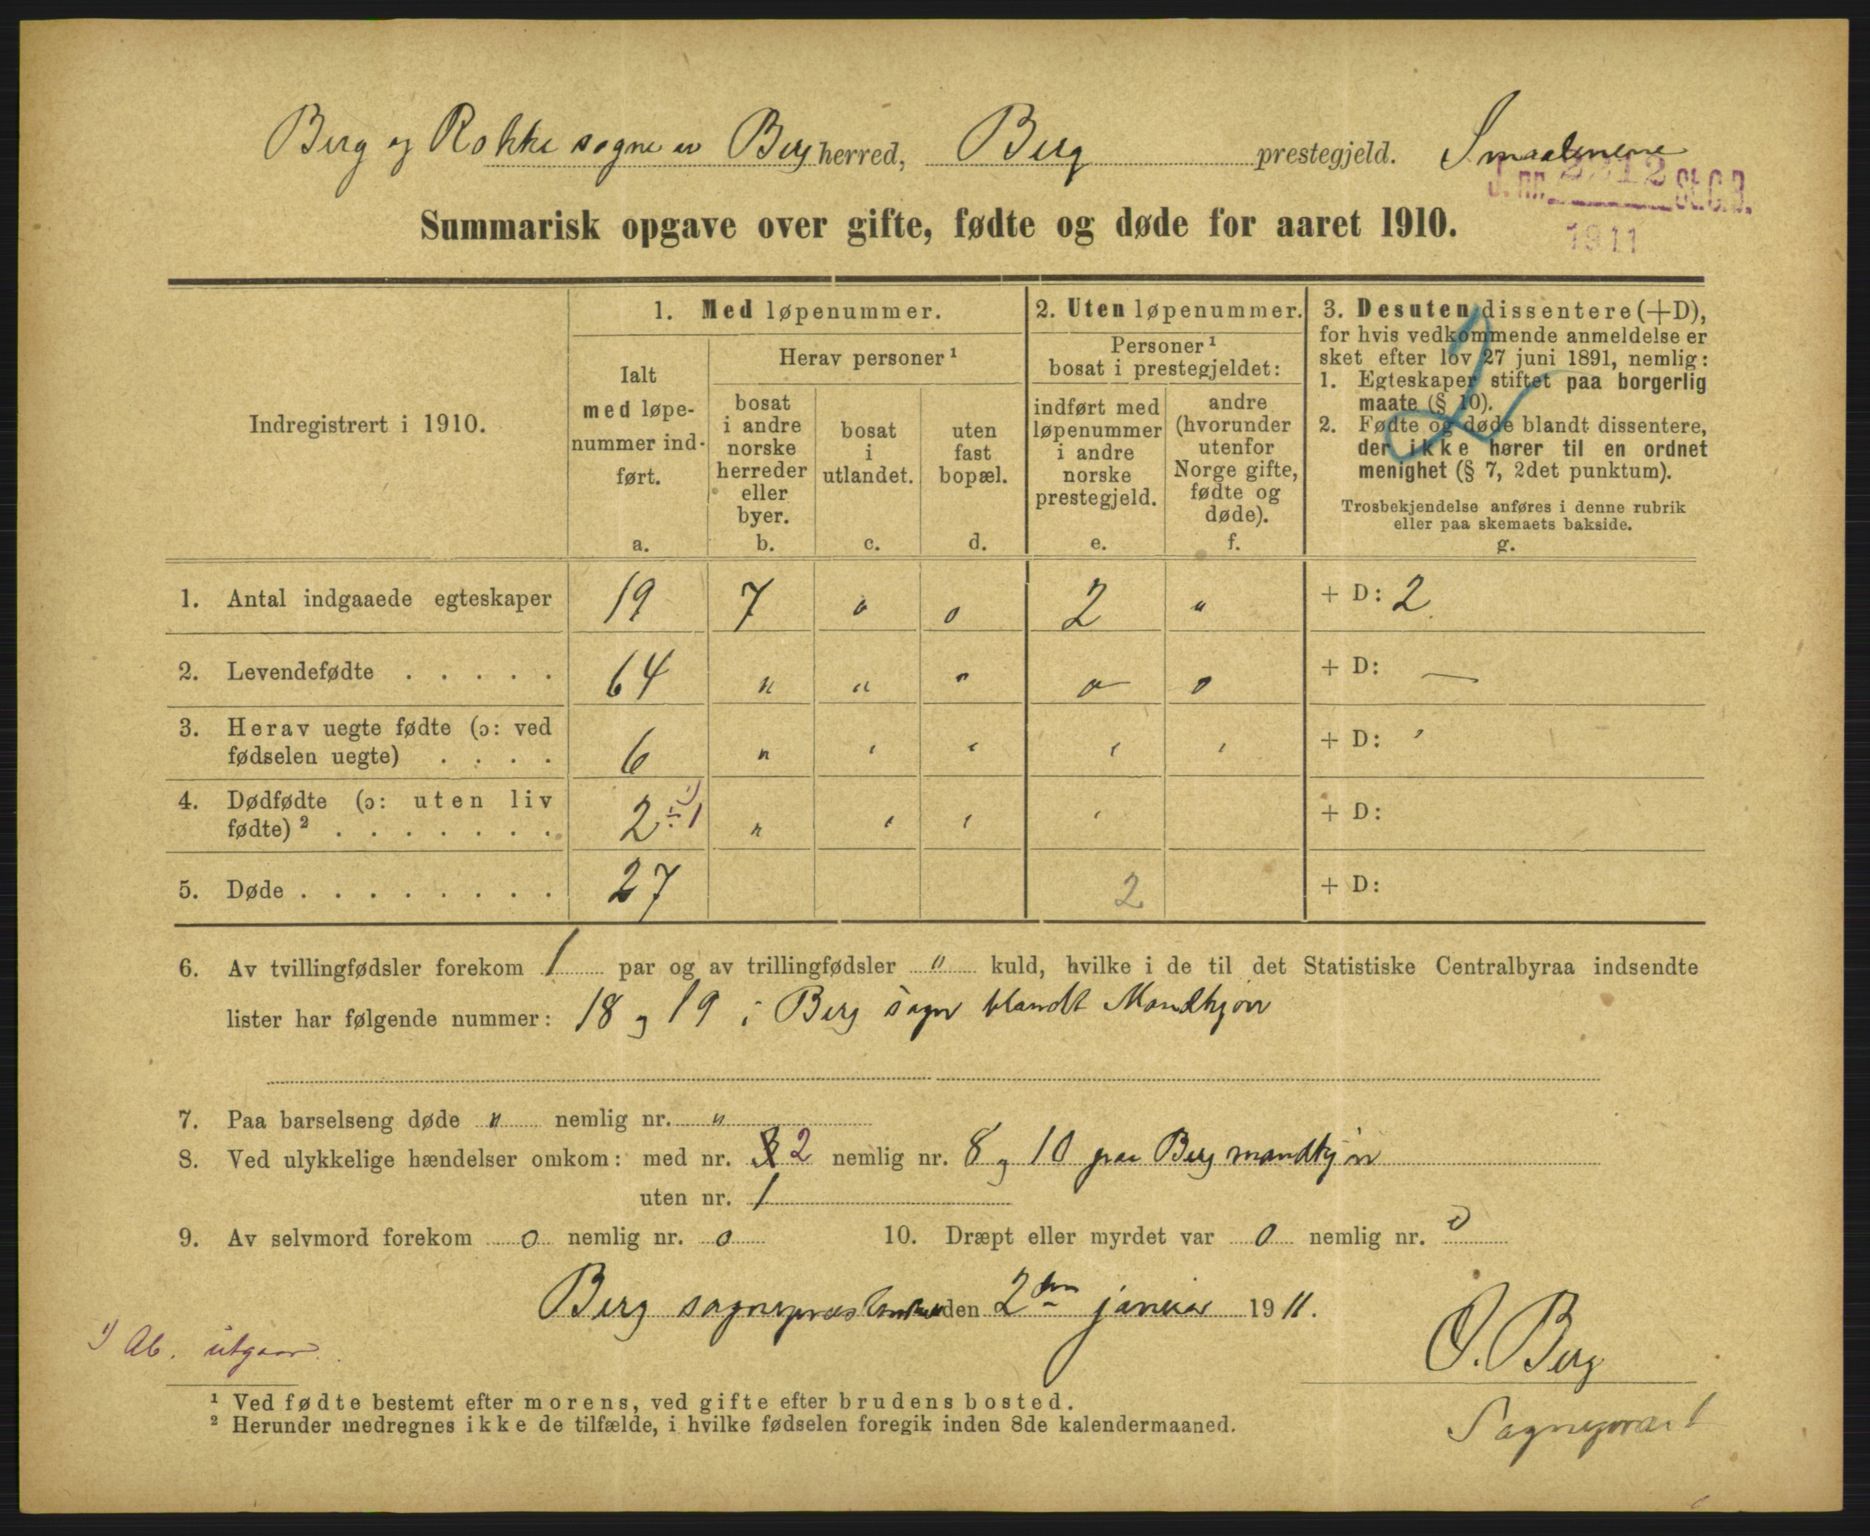 Berg og Rokke sogne av Berg herred, Berg prestegjeld. Smaalenene
J. nr. 2212 St.C.B.
1911
Summarisk opgave over gifte, fødte og døde for aaret 1910.
Indregistrert i 1910.
1. Med løpenummer.
Ialt
med løpe-
nummer ind-
ført.
a.
Herav personer¹
bosat
i andre
norske
herreder
eller
byer.
b.
bosat
i
utlandet.
c.
uten
fast
bopæl.
d.
2. Uten løpenummer.
Personer¹
bosat i prestegjeldet:
indført med
løpenummer
i andre
norske
prestegjeld.
e.
andre
(hvorunder
utenfor
Norge gifte,
fødte og
døde).
f.
3. Desuten dissentere (+D),
for hvis vedkommende anmeldelse er
sket efter lov 27 juni 1891, nemlig:
1. Egteskaper stiftet paa borgerlig
maate (§ 10).
2. Fødte og døde blandt dissentere,
der ikke hører til en ordnet
menighet (§ 7, 2det punktum).
Trosbekjendelse anføres i denne rubrik
eller paa skemaets bakside.
g.
2
1. Antal indgaaede egteskaper 19 7 o o 2 " + D: 2
2. Levendefødte . . . . . 64 " " " o o + D: —
3. Herav uegte fødte (ɔ: ved
fødselen uegte) . . . . 6 " ' ' ' ' + D: '
4. Dødfødte (ɔ: uten liv
fødte)² . . . . . . . 2 ÷ 1 ¹) " ' ' ' + D:
5. Døde . . . . . . . . 27 2 + D:
6. Av tvillingfødsler forekom 1 par og av trillingfødsler " kuld, hvilke i de til det Statistiske Centralbyraa indsendte
lister har følgende nummer: 18 og 19 i Berg sogn blandt Mandkjøn
7. Paa barselseng døde " nemlig nr. "
8. Ved ulykkelige hændelser omkom: med nr. 2 nemlig nr. 8 og 10 paa Berg mandkjøn
uten nr. 1
9. Av selvmord forekom o nemlig nr. o 10. Dræpt eller myrdet var o nemlig nr. o
Berg sogneprestembede den 2den januar 1911.
¹) Ab. utgaar.
O. Berg
Sogneprest
¹ Ved fødte bestemt efter morens, ved gifte efter brudens bosted.
² Herunder medregnes ikke de tilfælde, i hvilke fødselen foregik inden 8de kalendermaaned.